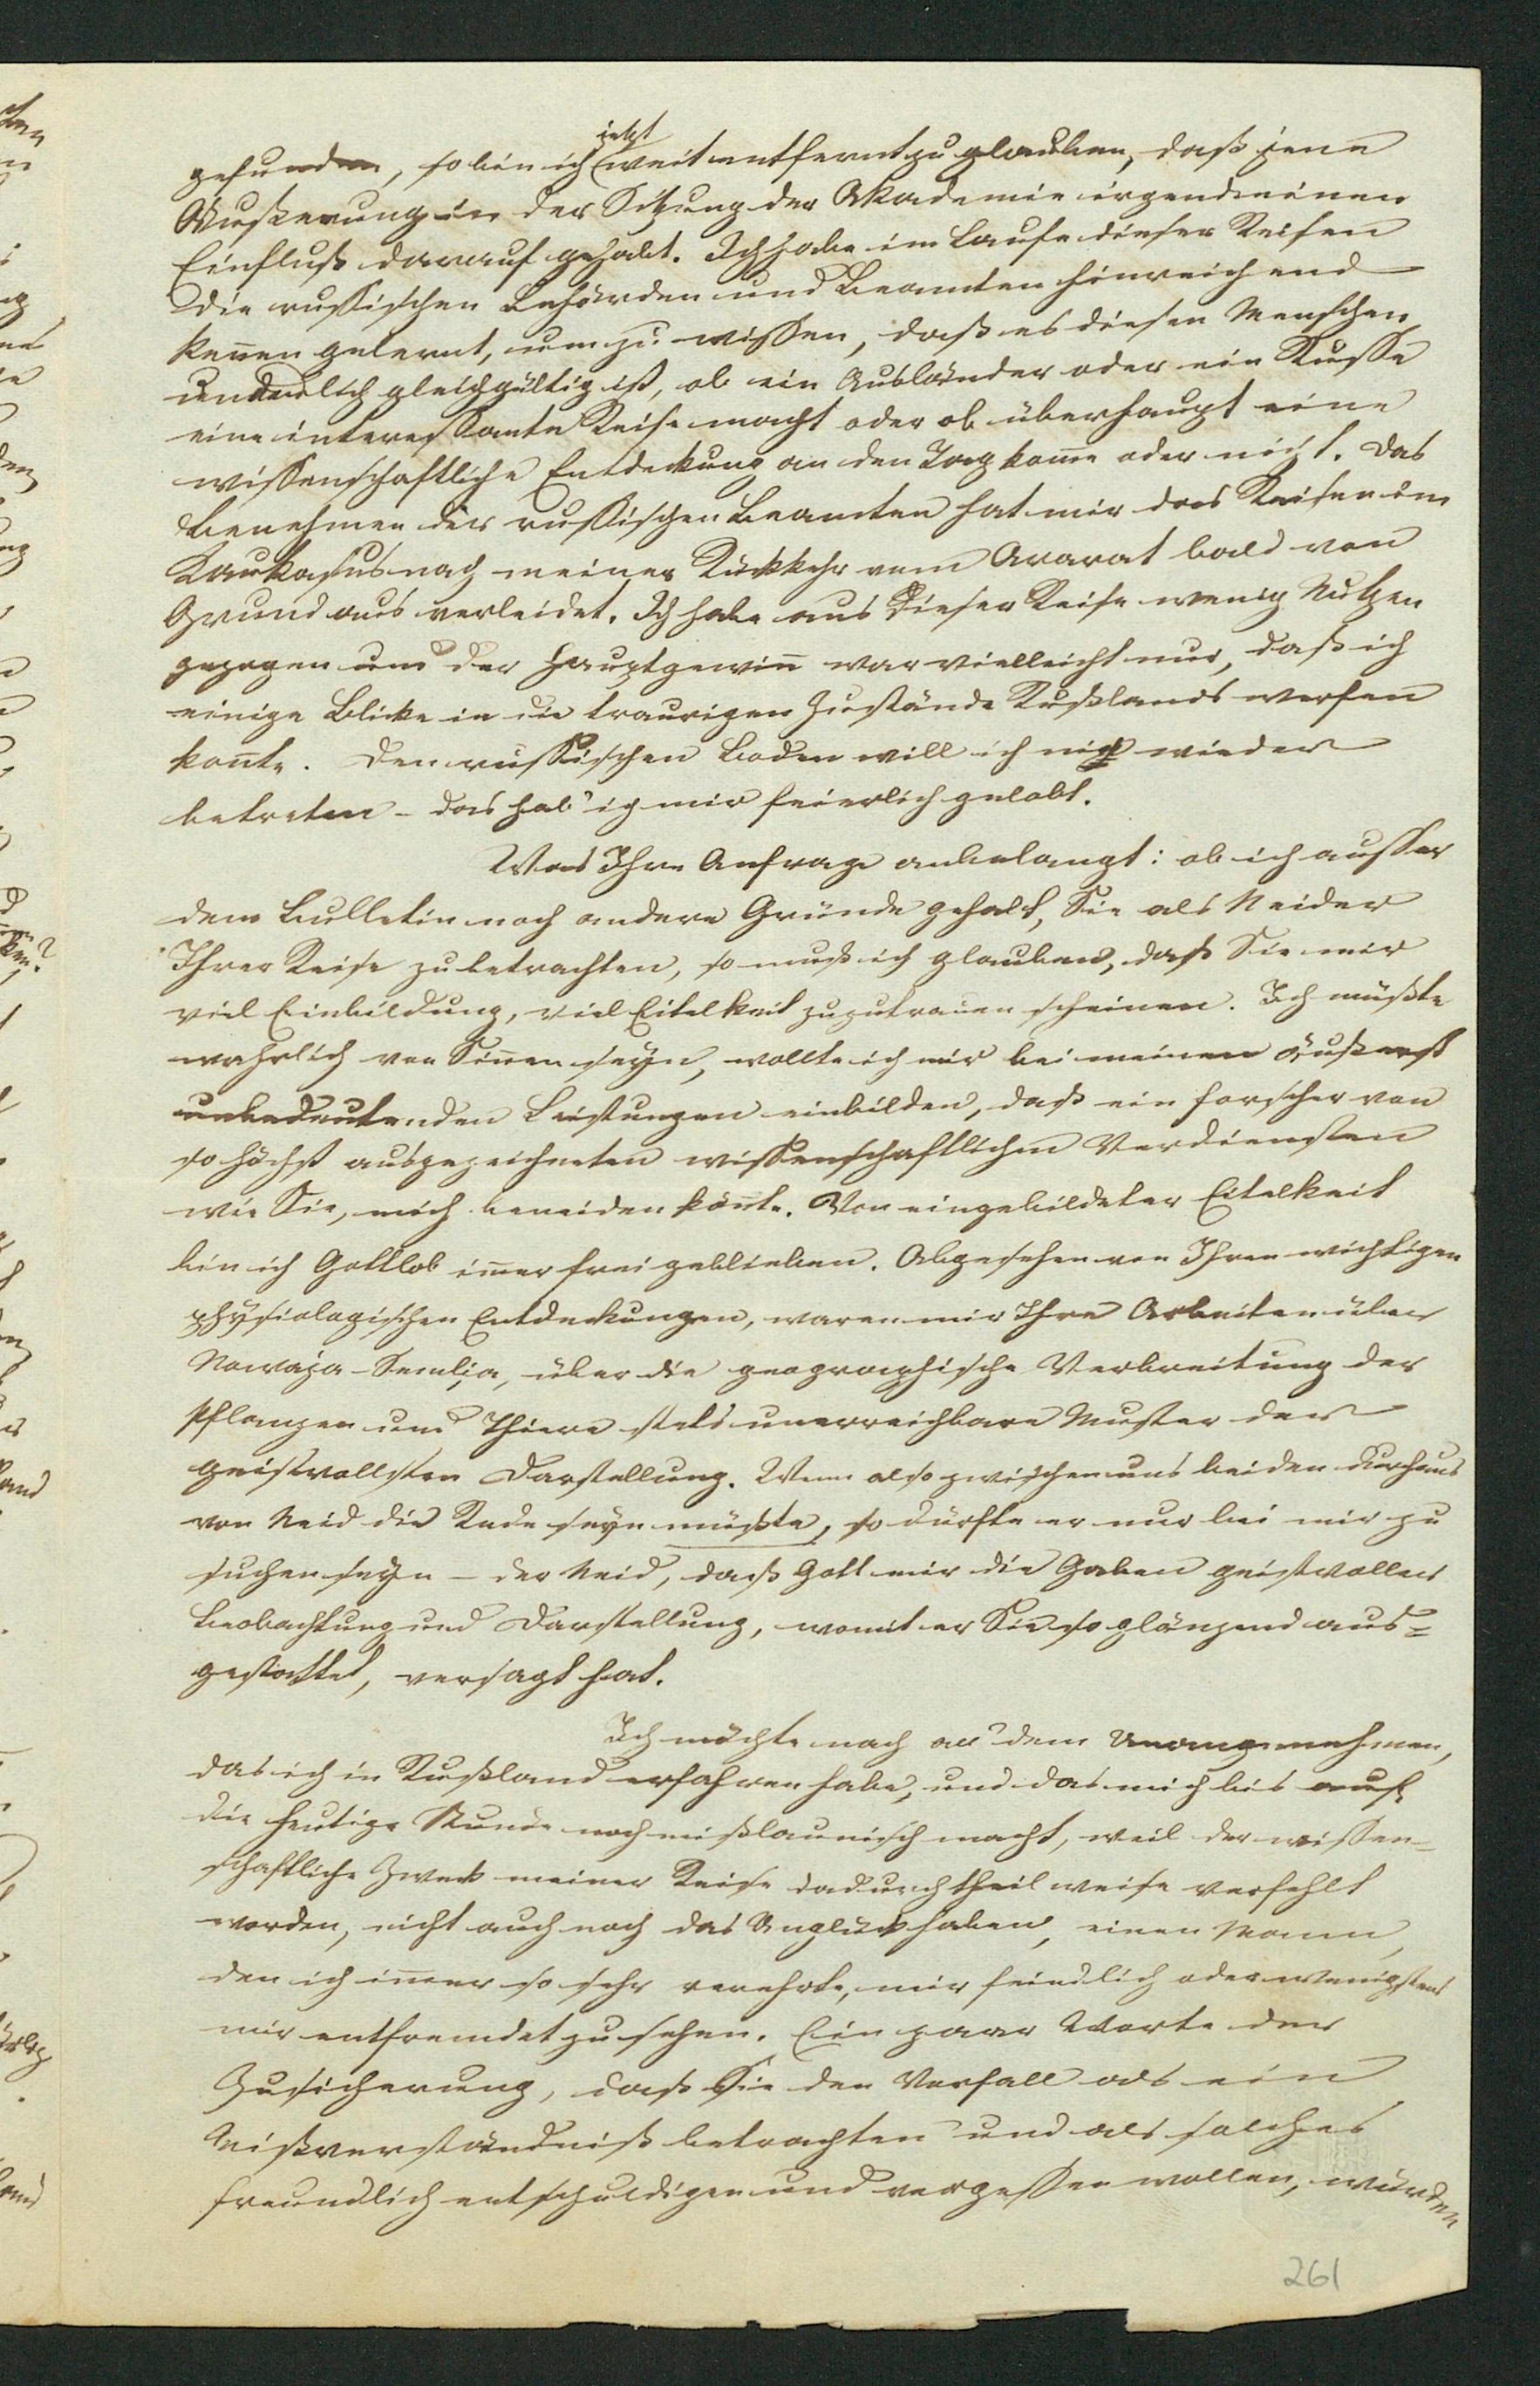 gefunden, so bin ich jetzt weit entfernt zu glauben, daß jene
Äußerung in der Sitzung der Akademie irgend einen
Einfluß darauf gehabt. Ich habe im Laufe dieser Reisen
die russischen Behörden und Beamten hinreichend
kennen gelernt, um zu wissen, daß es diesen Menschen
unendlich gleichgültig ist, ob ein Ausländer oder ein Russe
eine interessante Reise macht oder ob überhaupt eine
wissenschaftliche Entdeckung an den Tag komme oder nicht. Das
Benehmen der russischen Beamten hat mir das Reisen im
Kaukasus nach meiner Rückkehr vom Ararat bald von
Grund aus verleidet. Ich habe aus dieser Reise wenig Nutzen
gezogen und der Hauptgewinn war vielleicht nur, daß ich
einige Blicke in die traurigen Zustände Rußlands werfen
konnte. Den russischen Boden will ich nie wieder
betreten – das hab' ich mir feierlich gelobt.
Was Ihre Anfrage anbelangt: ob ich ausser
dem Bulletin noch andere Gründe gehabt, Sie als Neider
Ihrer Reise zu betrachten, so muß ich glauben, daß Sie mir
viel Einbildung, viel Eitelkeit zuzutrauen scheinen. Ich müßte
wahrlich von Sinnen seyn, wollte ich mir bei meinen äußerst
unbedeutenden Leistungen einbilden, daß ein Forscher von
so höchst ausgezeichneten wissenschaftlichen Verdiensten
wie Sie, mich beneiden könnte. Von eingebildeter Eitelkeit
bin ich Gottlob immer frei geblieben. Abgesehen von Ihren wichtigen
physiologischen Entdeckungen, waren mir Ihre Arbeiten über
Nowaja-Semlja, über die geographische Verbreitung der
Pflanzen und Thiere stets unerreichbare Muster der
geistvollsten Darstellung. Wenn also zwischen uns beiden durchaus
von Neid die Rede seyn müßte, so dürfte er nur bei mir zu
suchen seyn – der Neid, daß Gott mir die Gaben geistvoller
Beobachtung und Darstellung, womit er Sie so glänzend aus=
gestattet, versagt hat.
Ich möchte nach all' dem Unangenehmen,
das ich in Rußland erfahren habe, und das mich bis auf
die heutige Stunde noch mißlaunisch macht, weil der wissen-
schaftliche Zweck meiner Reise dadurch theilweise verfehlt
worden, nicht auch noch das Unglück haben, einen Mann,
den ich immer so sehr verehrte, mir feindlich oder wenigstens
mir entfremdet zu sehen. Ein paar Worte der
Zusicherung, daß Sie den Vorfall als ein
Mißverständniß betrachten und als solches
freundlich entschuldigen und vergessen wollen, würden
261